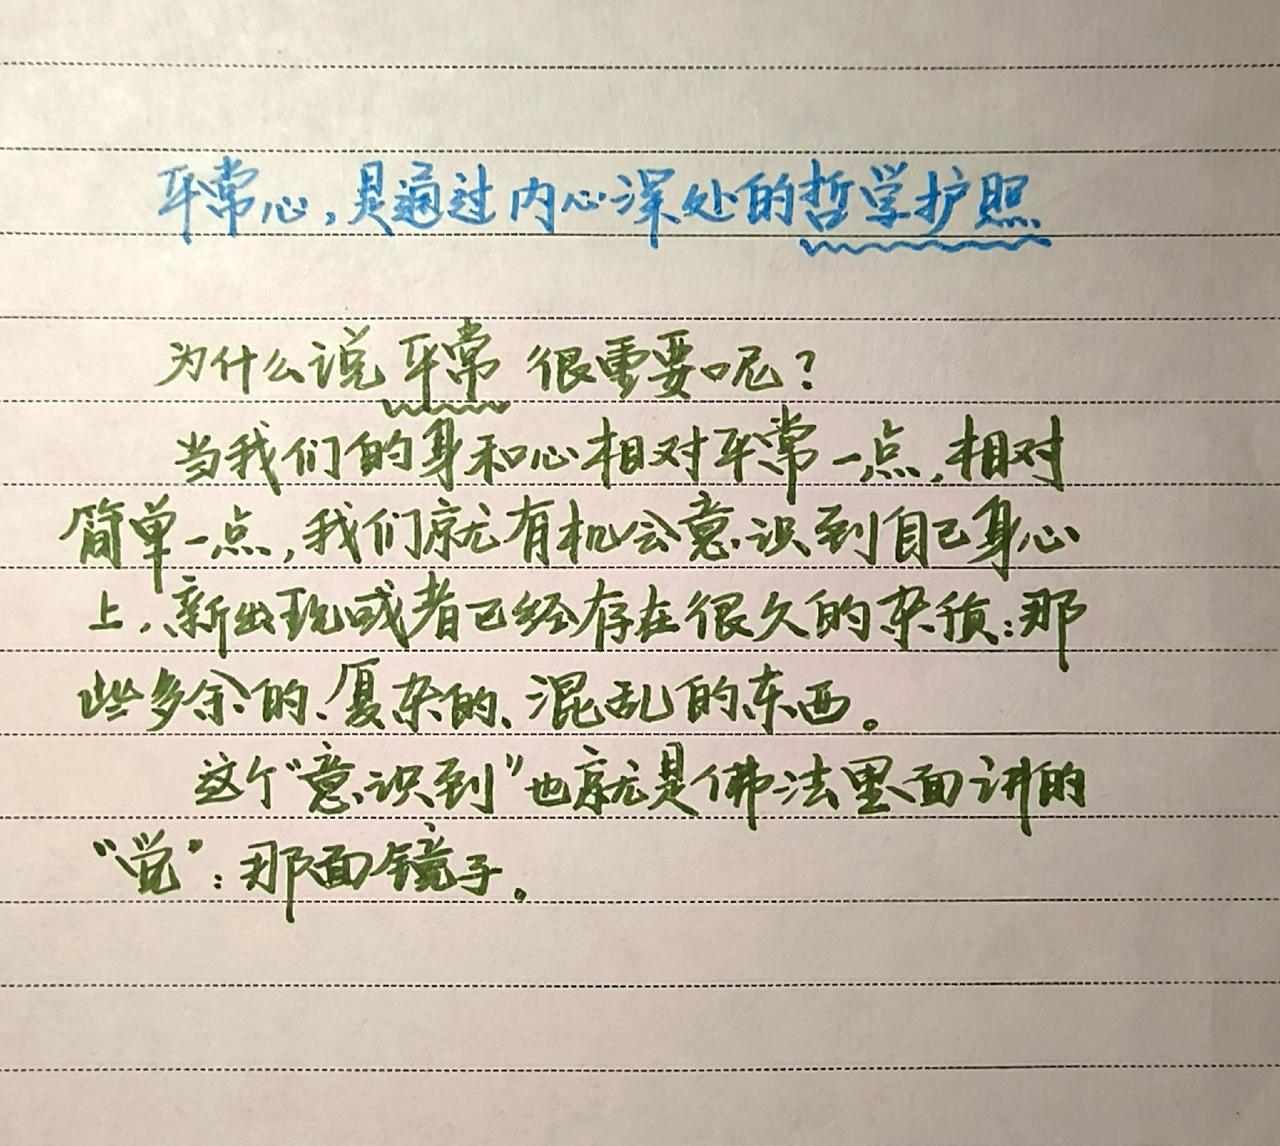 平常心，是通过内心深处的哲学护照
为什么说平常很重要呢？
当我们的身和心相对平常一点，相对
简单一点，我们就有机会意识到自己身心
上、新出现或者已经存在很久的杂质：那
些多余的、复杂的、混乱的东西。
这个“意识到”也就是佛法里面讲的
“觉”：那面镜子。